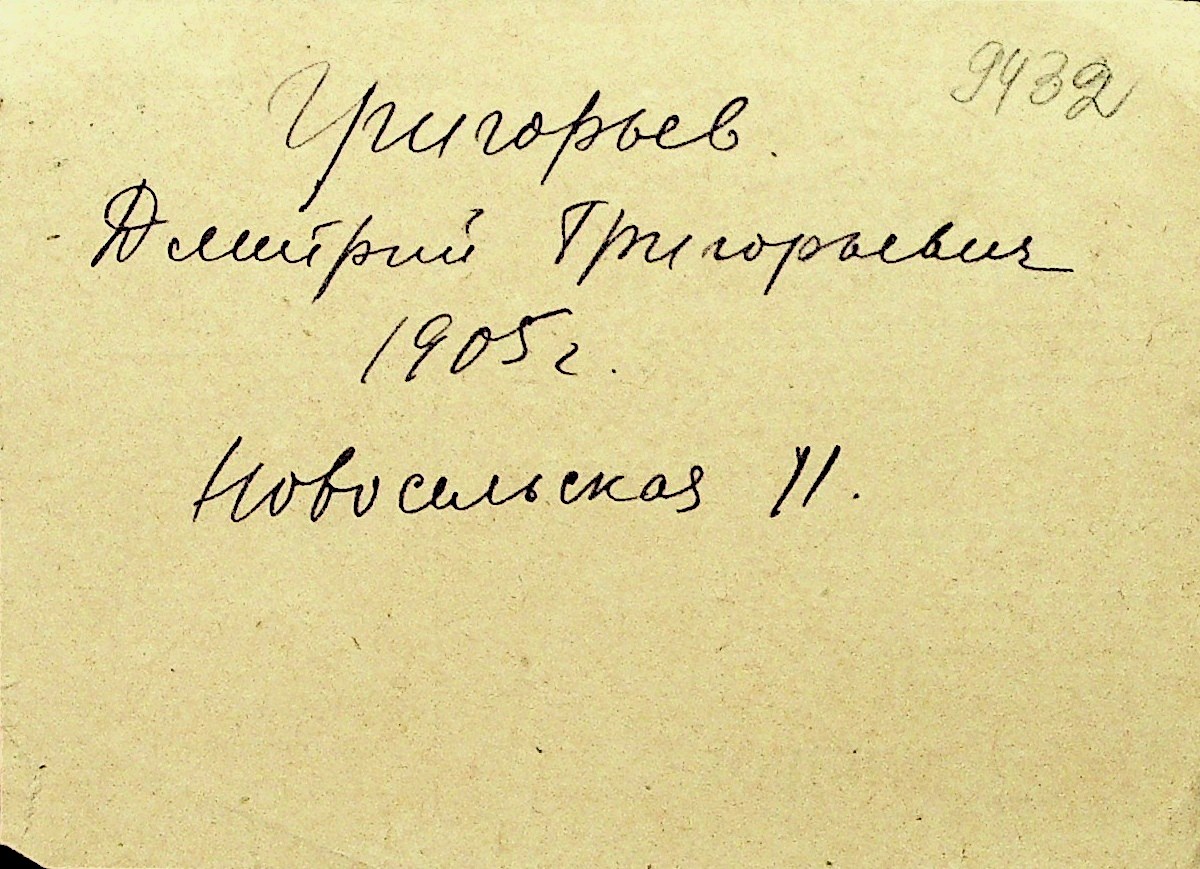 9432
Григорьев.
Дмитрий Григорьевич
1905г.
Новосельская 11.